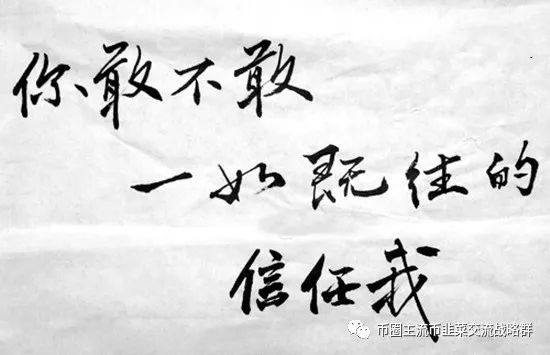 你敢不敢
一如既往的
信任我
币圈主流币韭菜交流战略群